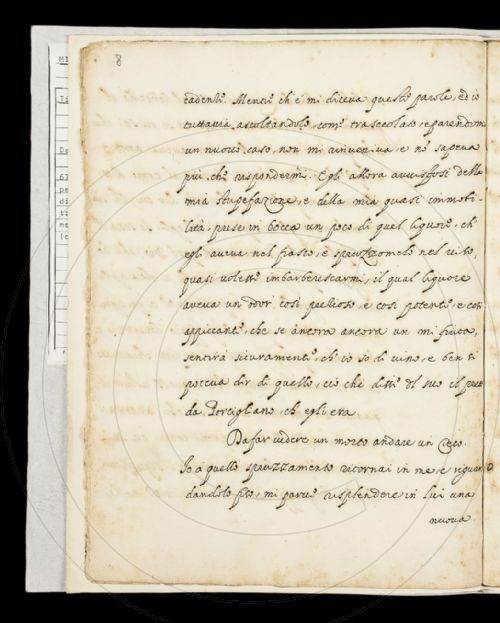 8
cadenti. Mentre ch'e' mi diceva queste parole, ed io
tuttavia ascoltandolo, come trasecolato, e parendomi
un nuovo caso, non mi rinveniva, e no' sapeva
più che rispondermi. Egli allora avvistosi della
mia stupefazione, e della mia quasi immobi-
lità, prese in bocca un poco di quel liquore, ch'
egli aveva nel fiasco, e spruzzomelo nel viso,
quasi volesse imbarberescarmi, il qual liquore
aveva un odor così prelioso, e così potente, e così
appiccante, che se ancora ancora un mi fiuta,
sentirà sicuramente, ch'io so di vino, e ben si
poteva dir di quello, ciò che disse del suo il
da Porcigliano ch'egli era.
Da far vedere un morto andare un Cieco.
Io a quello spruzzamento ritornai in me, e riguar
dandolo fiso, mi parve risplendere in lui una
nuova